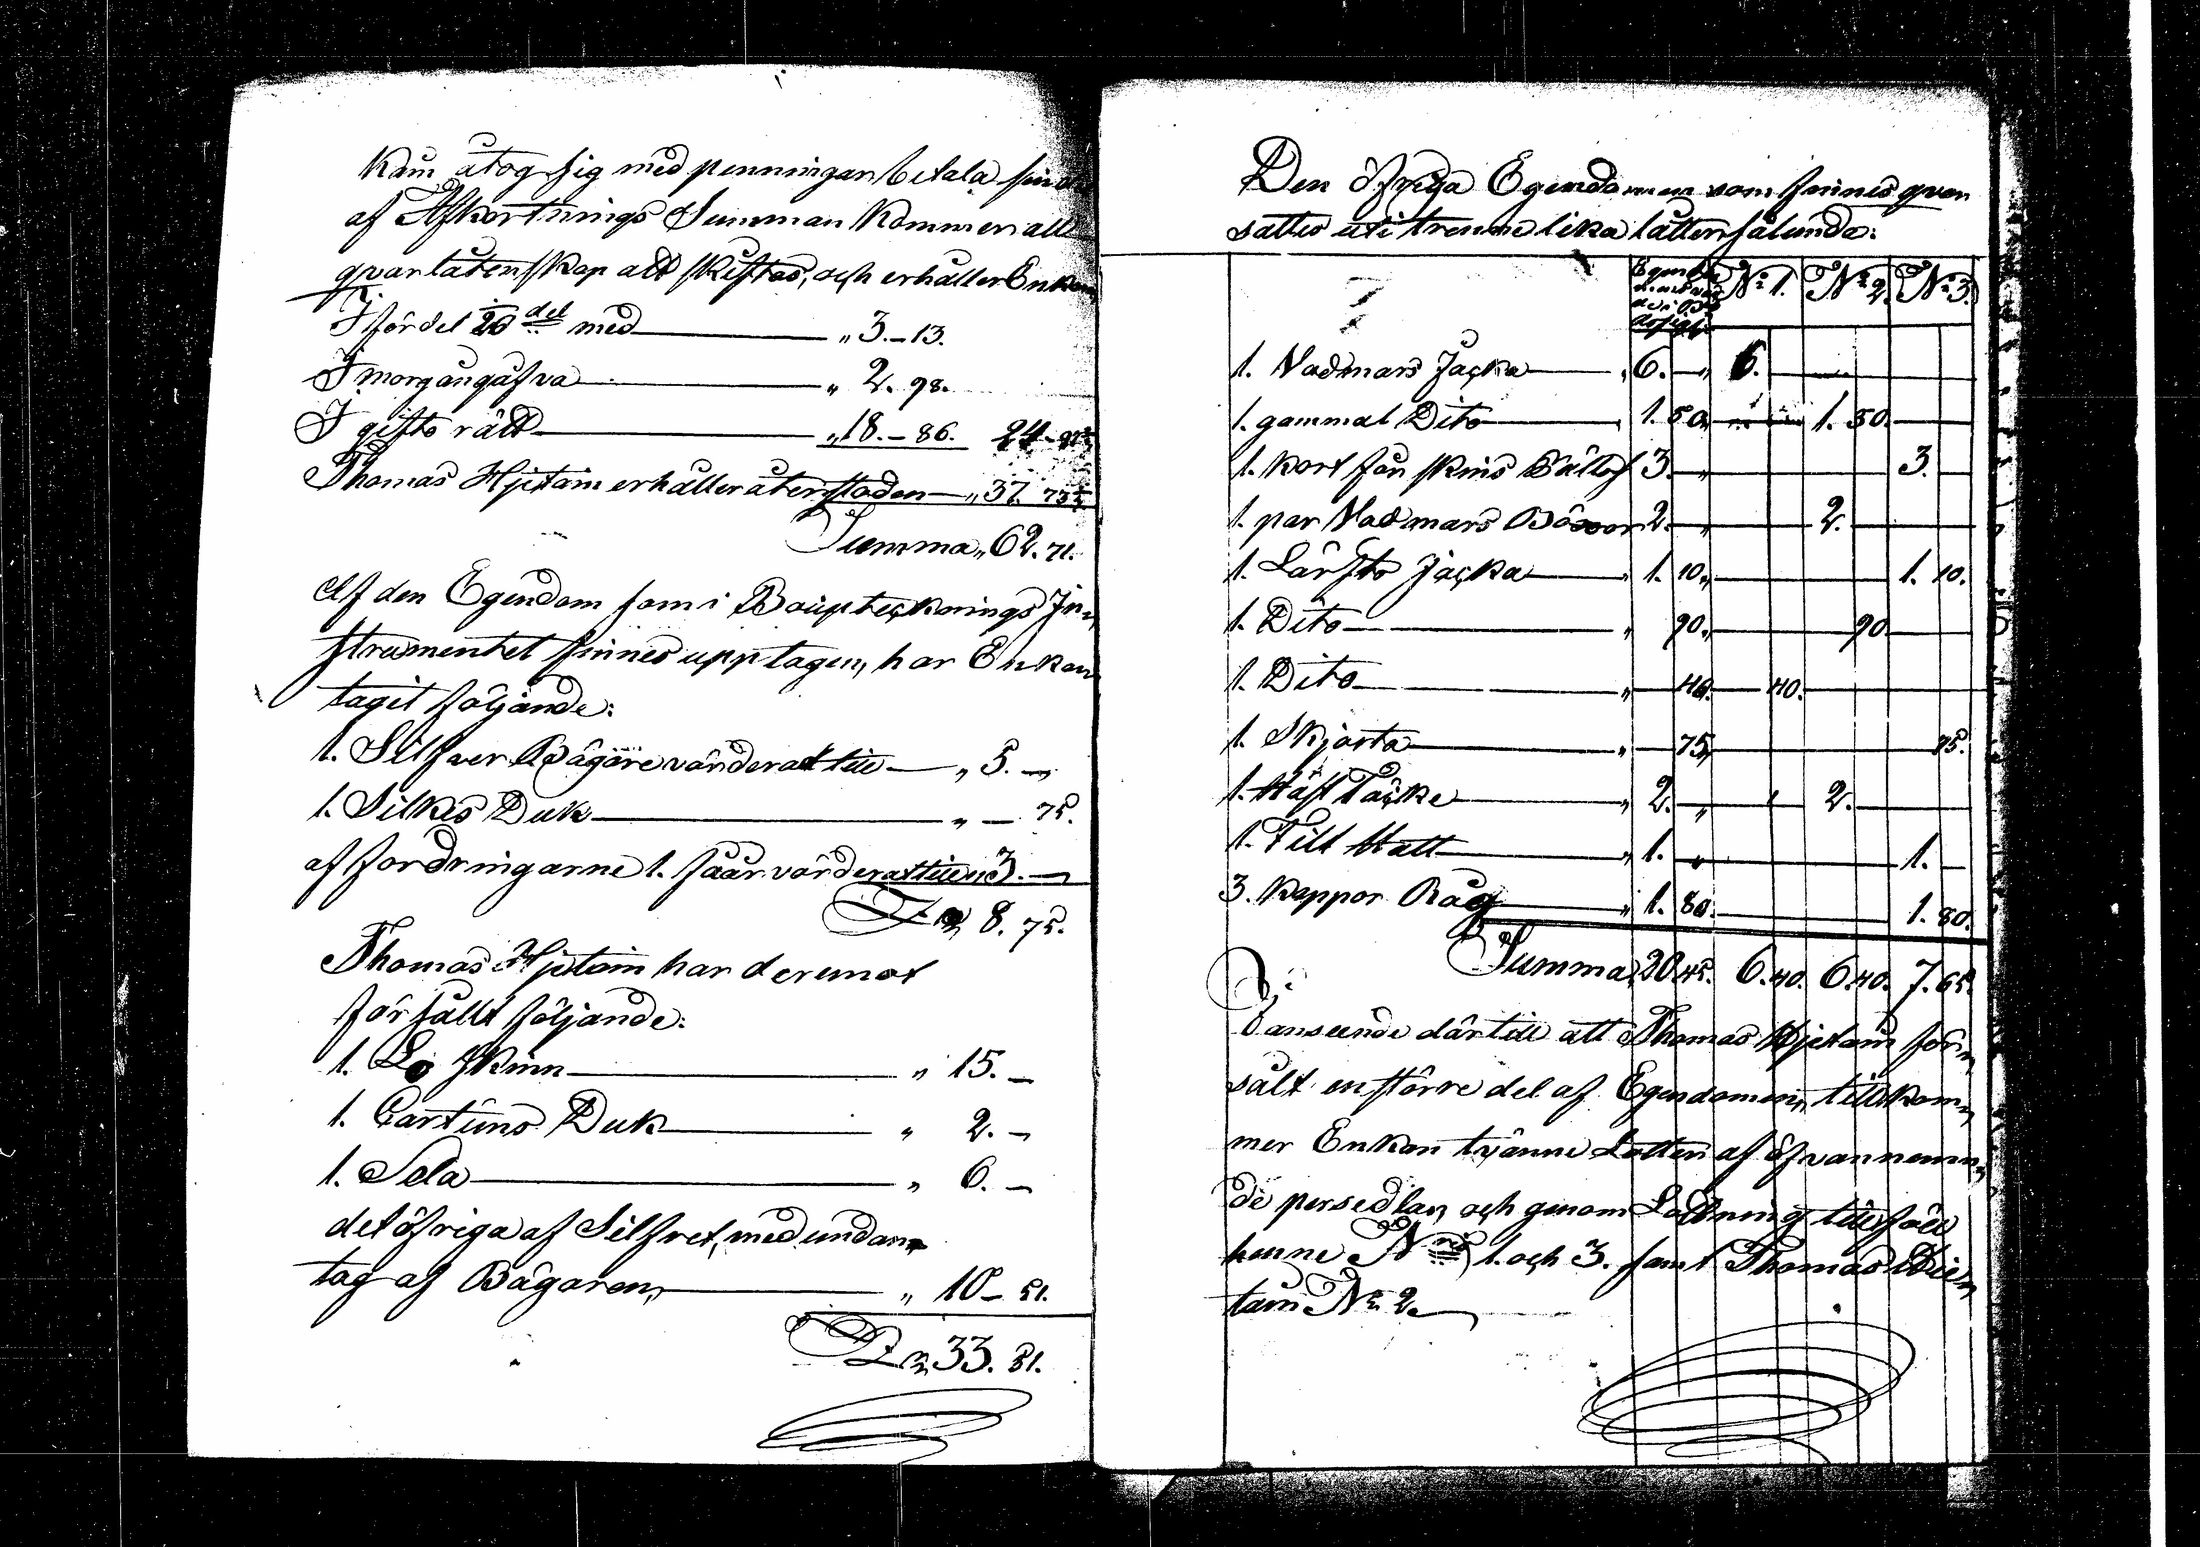 kam åtog sig med penningar betala
af Afkortnings Summan kommer all
qvarlåtenskap att skiftas, och erhåller Enkan
I fördel 20 del med „ 3.–13.
I morgongåfva „ 2. 98.
I giftorätt „ 18.–86. 24–
Thomas Hjetam erhåller återstoden „ 37. 73½
Summa „ 62. 71.
Af den Egendom som i Bouptecknings In„
strumentet finnes upptagen, har Enkan
tagit följande:
1. Silfver Bägare värderat till „ 5. –
1. Silkes Duk „ – 75.
af fordringarne 1. får värderat till „ 3. –
8. 75.
Thomas Hjetam har deremot
försålt följande:
1. Lo skinn „ 15. –
1. Cartuns Duk „ 2. –
1. Sela „ 6. –
det öfriga af Silfret, med undan„
tag af Bägaren, „ 10– 51.
33. 51.
Den öfriga Egendomen som finnes qvar
sattes uti trenne lika låtter sålunda:
No 1. No 2. No 3.
1. Vadmars Jacka „ 6. – „ 6.
1. gammal Dito „ 1. 50. 1. 50.
1. kort får skins 3. – „ 3.
1. par Vadmars Böxor 2. – „ 2.
1. Lärfts Jacka „ 1. 10. 1. 10.
1. Dito „ 90. 90
1. Dito „ 40. 40.
1. Skjorta „ – 75. 75.
1. Häst Täcke „ 2. – „ 2.
1. Filt Hatt „ 1. „ 1. –
3. kappor Råg „ 1. 80. 1. 80.
Summa 20.45. 6.40. 6.40. 7.65.
I anseende därtill att Thomas Hjetam för„
sålt en större del af Egendomen, tillkom„
mer Enkan tvänne Lotter af öfvannemn„
de persedlar, och genom Lottning tillföll
henne No 1. och 3. samt Thomas Hie„
tam No 2.